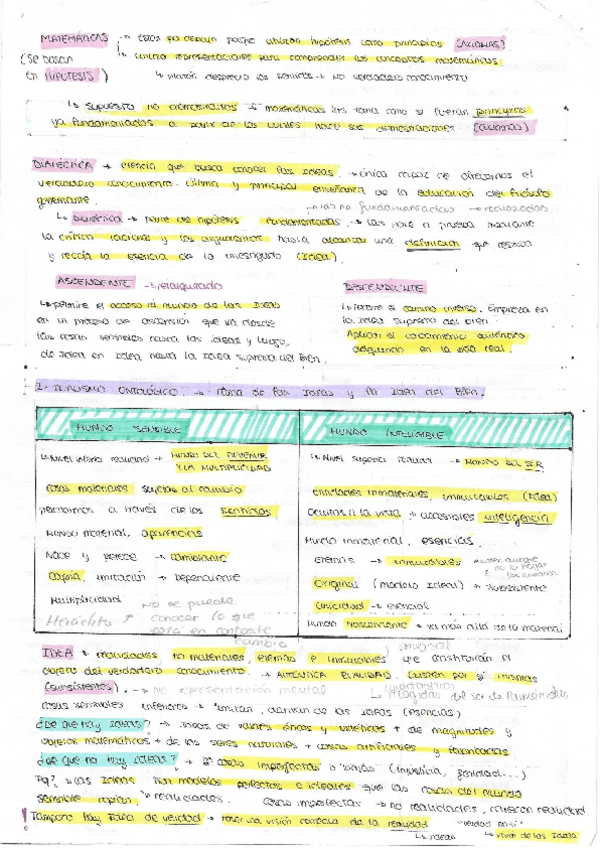 MATEMÁTICAS → Estas no captan porque utilizan hipótesis como principios (AXIOMAS)
(Se basan ↳ utiliza representaciones para comprender los conceptos matemáticos
en HIPÓTESIS) ↳ Platón desprecia los sentidos → NO verdadero conocimiento
↳ Supuesto no demostrados → matemáticas los toma como si fueran principios
ya fundamentados a partir de los cuales hace sus demostraciones (axiomas)
DIALÉCTICA → ciencia que busca conocer las Ideas → única capaz de ofrecernos el
verdadero conocimiento. Última y principal enseñanza de la educación del filósofo
gobernante. → las no fundamentadas → rechazadas
↳ Dialéctica → parte de hipótesis fundamentadas → las pone a prueba mediante
la crítica racional y los argumentos hasta alcanzar una definición que
y recoja la esencia de lo investigado (Idea)
ASCENDENTE → jerarquizado
DESCENDENTE
↳ permite el acceso al mundo de las Ideas
en un proceso de ascensión que va desde
las cosas sensibles hasta las ideas y luego,
de Idea en Idea hasta la Idea suprema del Bien.
↳ recorre el camino inverso. Empieza en
la idea suprema del bien.
Aplicar el conocimiento auténtico
adquirido en la vida real.
1. DUALISMO ONTOLÓGICO → Teoría de las Ideas y la Idea del Bien.
MUNDO SENSIBLE
↳ Nivel inferior realidad → MUNDO DEL DEVENIR
Y LA MULTIPLICIDAD
cosas materiales sujetas al cambio
percibimos a través de los sentidos
Mundo material, apariencias
Nace y perece → cambiante
Copia, imitación → dependiente
Multiplicidad
Heráclito → no se puede
conocer lo que
está en constante
cambio
MUNDO INTELIGIBLE
↳ Nivel superior realidad → MUNDO DEL SER
entidades inmateriales, inmutables (Idea)
Ocultos a la vista → accesibles inteligencia
Mundo inmaterial, esencias.
Eternas → inmutables
Original (modelo Ideal) → subsistente
Unicidad → esencial
IDEA → realidades no materiales, eternas e inmutables que constituirán el
objeto del verdadero conocimiento. → AUTÉNTICA REALIDAD. Existen por sí mismas
(subsistentes). → no representación mental
↳ recogidas del ser de Parménides
cosas sensibles inferiores → imitan, derivan de las Ideas (esencias)
¿De qué hay Ideas? → Ideas de valores éticos y estéticos + de magnitudes y
objetos matemáticos + de los seres naturales + cosas artificiales y fabricadas
¿De qué no hay Ideas? → De cosas imperfectas o "malas" (injusticia, fealdad...)
Pq? → Las Ideas son modelos perfectos e ideales que las cosas del mundo
sensible copian, → realidades. Cosas imperfectas → no realidades, carecen realidad
! Tampoco hay Idea de verdad → tener una visión correcta de la realidad
↳ Ideas ↳ visión de las Ideas